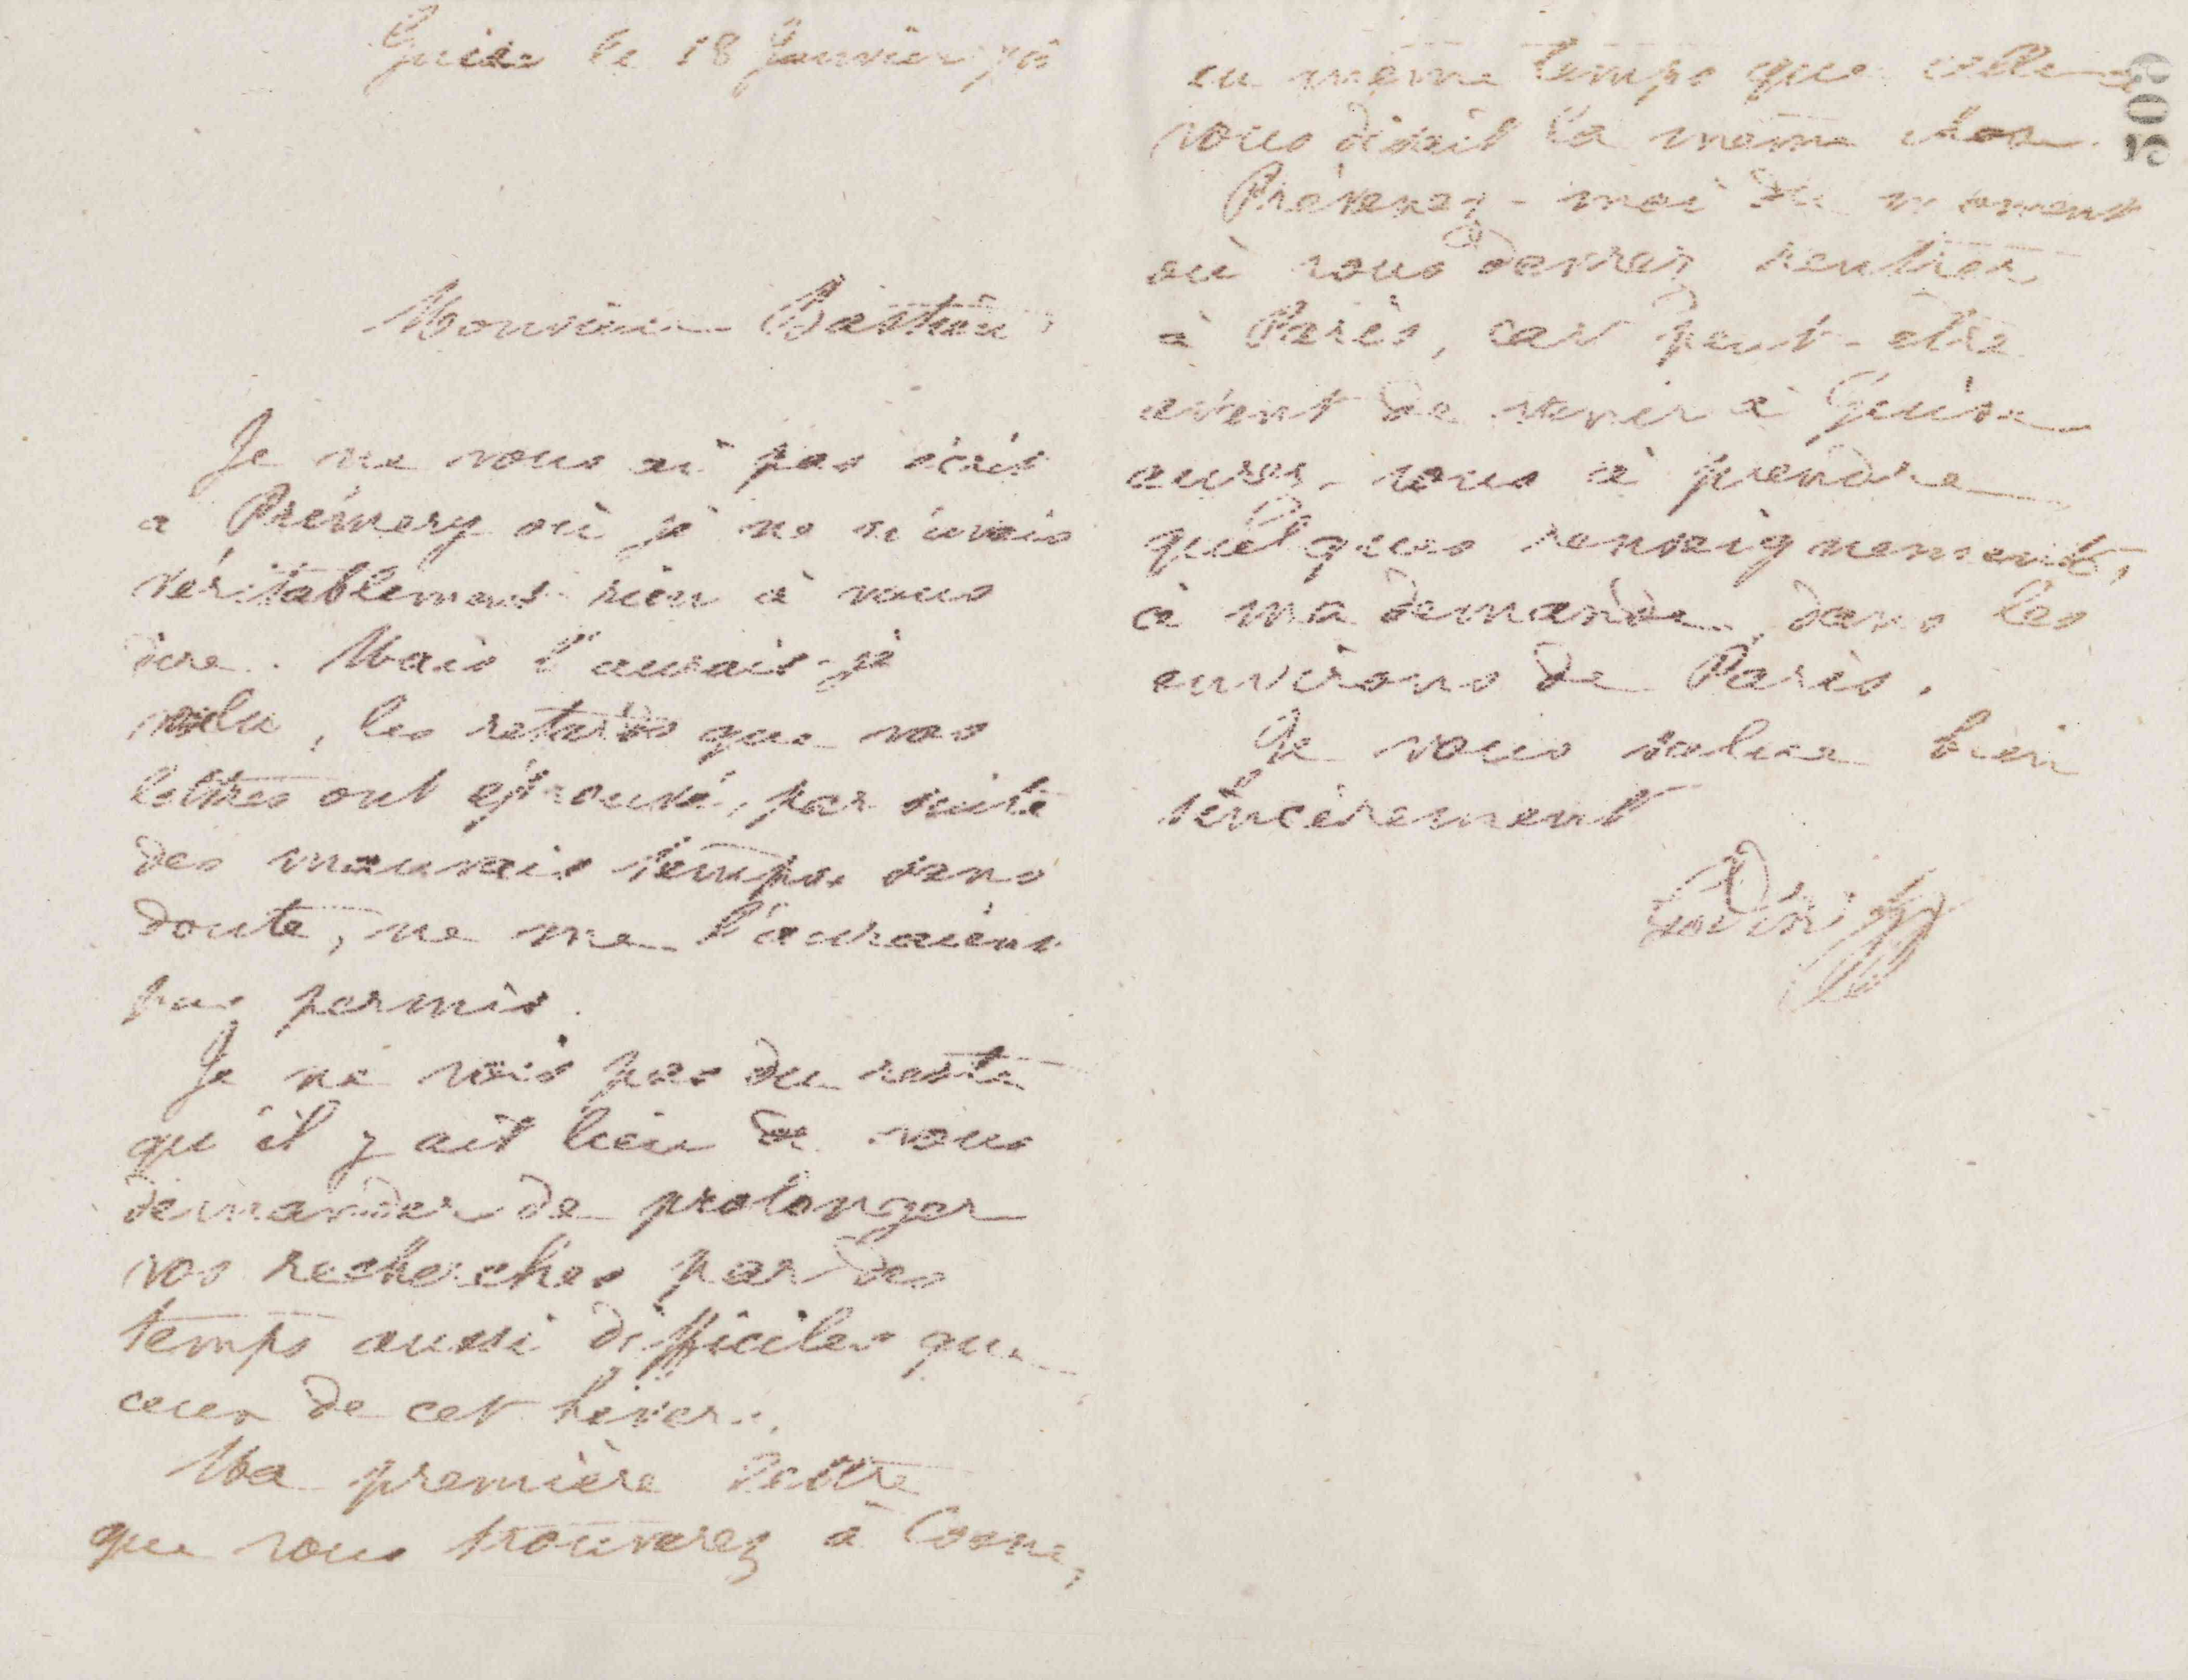 Guise le 18 Janvier 76
Monsieur Bastien
Je ne vous ai pas écrit
a Prémery où je ne n'avais
véritablement rien à vous
dire. Mais l'aurais-je
voulu, les retards que vos
lettres ont éprouvé, par suite
des mauvais temps sans
doute, ne me l'auraient
pas permis.
Je ne vois pas du reste
qu'il y ait lieu de vous
demander de prolonger
vos recherches par des
temps aussi difficiles que
ceux de cet hiver.
Ma première lettre
que vous trouverez à Cosne,
en même temps que celle-ci
vous disait la même chose.
Prévenez-moi du moment
où vous devrez rentrer
à Paris, car peut-être
avant de venir à Guise
aurez-vous à prendre
quelques renseignements,
à ma demande, dans les
environs de Paris.
Je vous salue bien
sincèrement
Godin
505